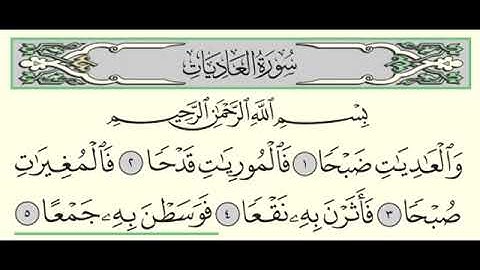 سُورَةُ الْعَادِيَاتِ
بِسْمِ اللَّهِ الرَّحْمَٰنِ الرَّحِيمِ
وَالْعَادِيَاتِ ضَبْحًا ١ فَالْمُورِيَاتِ قَدْحًا ٢ فَالْمُغِيرَاتِ
صُبْحًا ٣ فَأَثَرْنَ بِهِ نَقْعًا ٤ فَوَسَطْنَ بِهِ جَمْعًا ٥